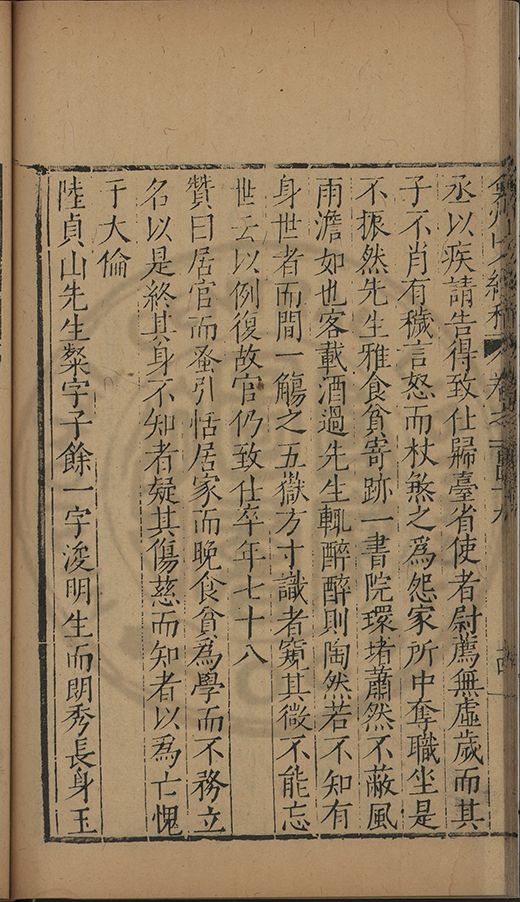 丞以疾請告得致仕歸臺省使者尉薦無虛歲而其
子不肖有穢言怒而杖煞之爲怨家所中奪職坐是
不振然先生雅食貧寄跡一書院環堵蕭然不蔽風
雨澹如也客載酒過先生輒醉醉則陶然若不知有
身世者而間一觴之五嶽方寸識者窺其微不能忘
世云以例復故官仍致仕卒年七十八
贊曰居官而蚤引恬居家而晚食貧為學而不務立
名以是終其身不知者疑其傷慈而知者以爲亡愧
于大倫
陸貞山先生粲字子餘一字浚明生而朗秀長身玉